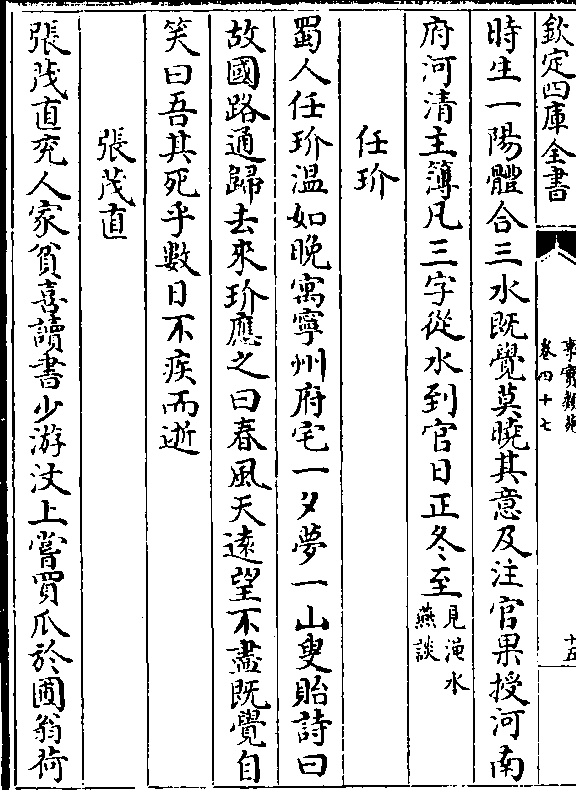 欽定四庫全書
事實類苑
卷四十七
十五
時生一陽體合三水既覺莫曉其意及注官果授河南
府河清主簿凡三字從水到官日正冬至見澠水燕談
任玠
蜀人任玠溫如晚寓寧州府宅一夕夢一山叟貽詩曰
故國路通歸去來玠應之曰春風天遠望不盡既覺自
笑曰吾其死乎數日不疾而逝
張茂直
張茂直兖人家貧喜讀書少游汶上嘗買瓜於圃翁荷